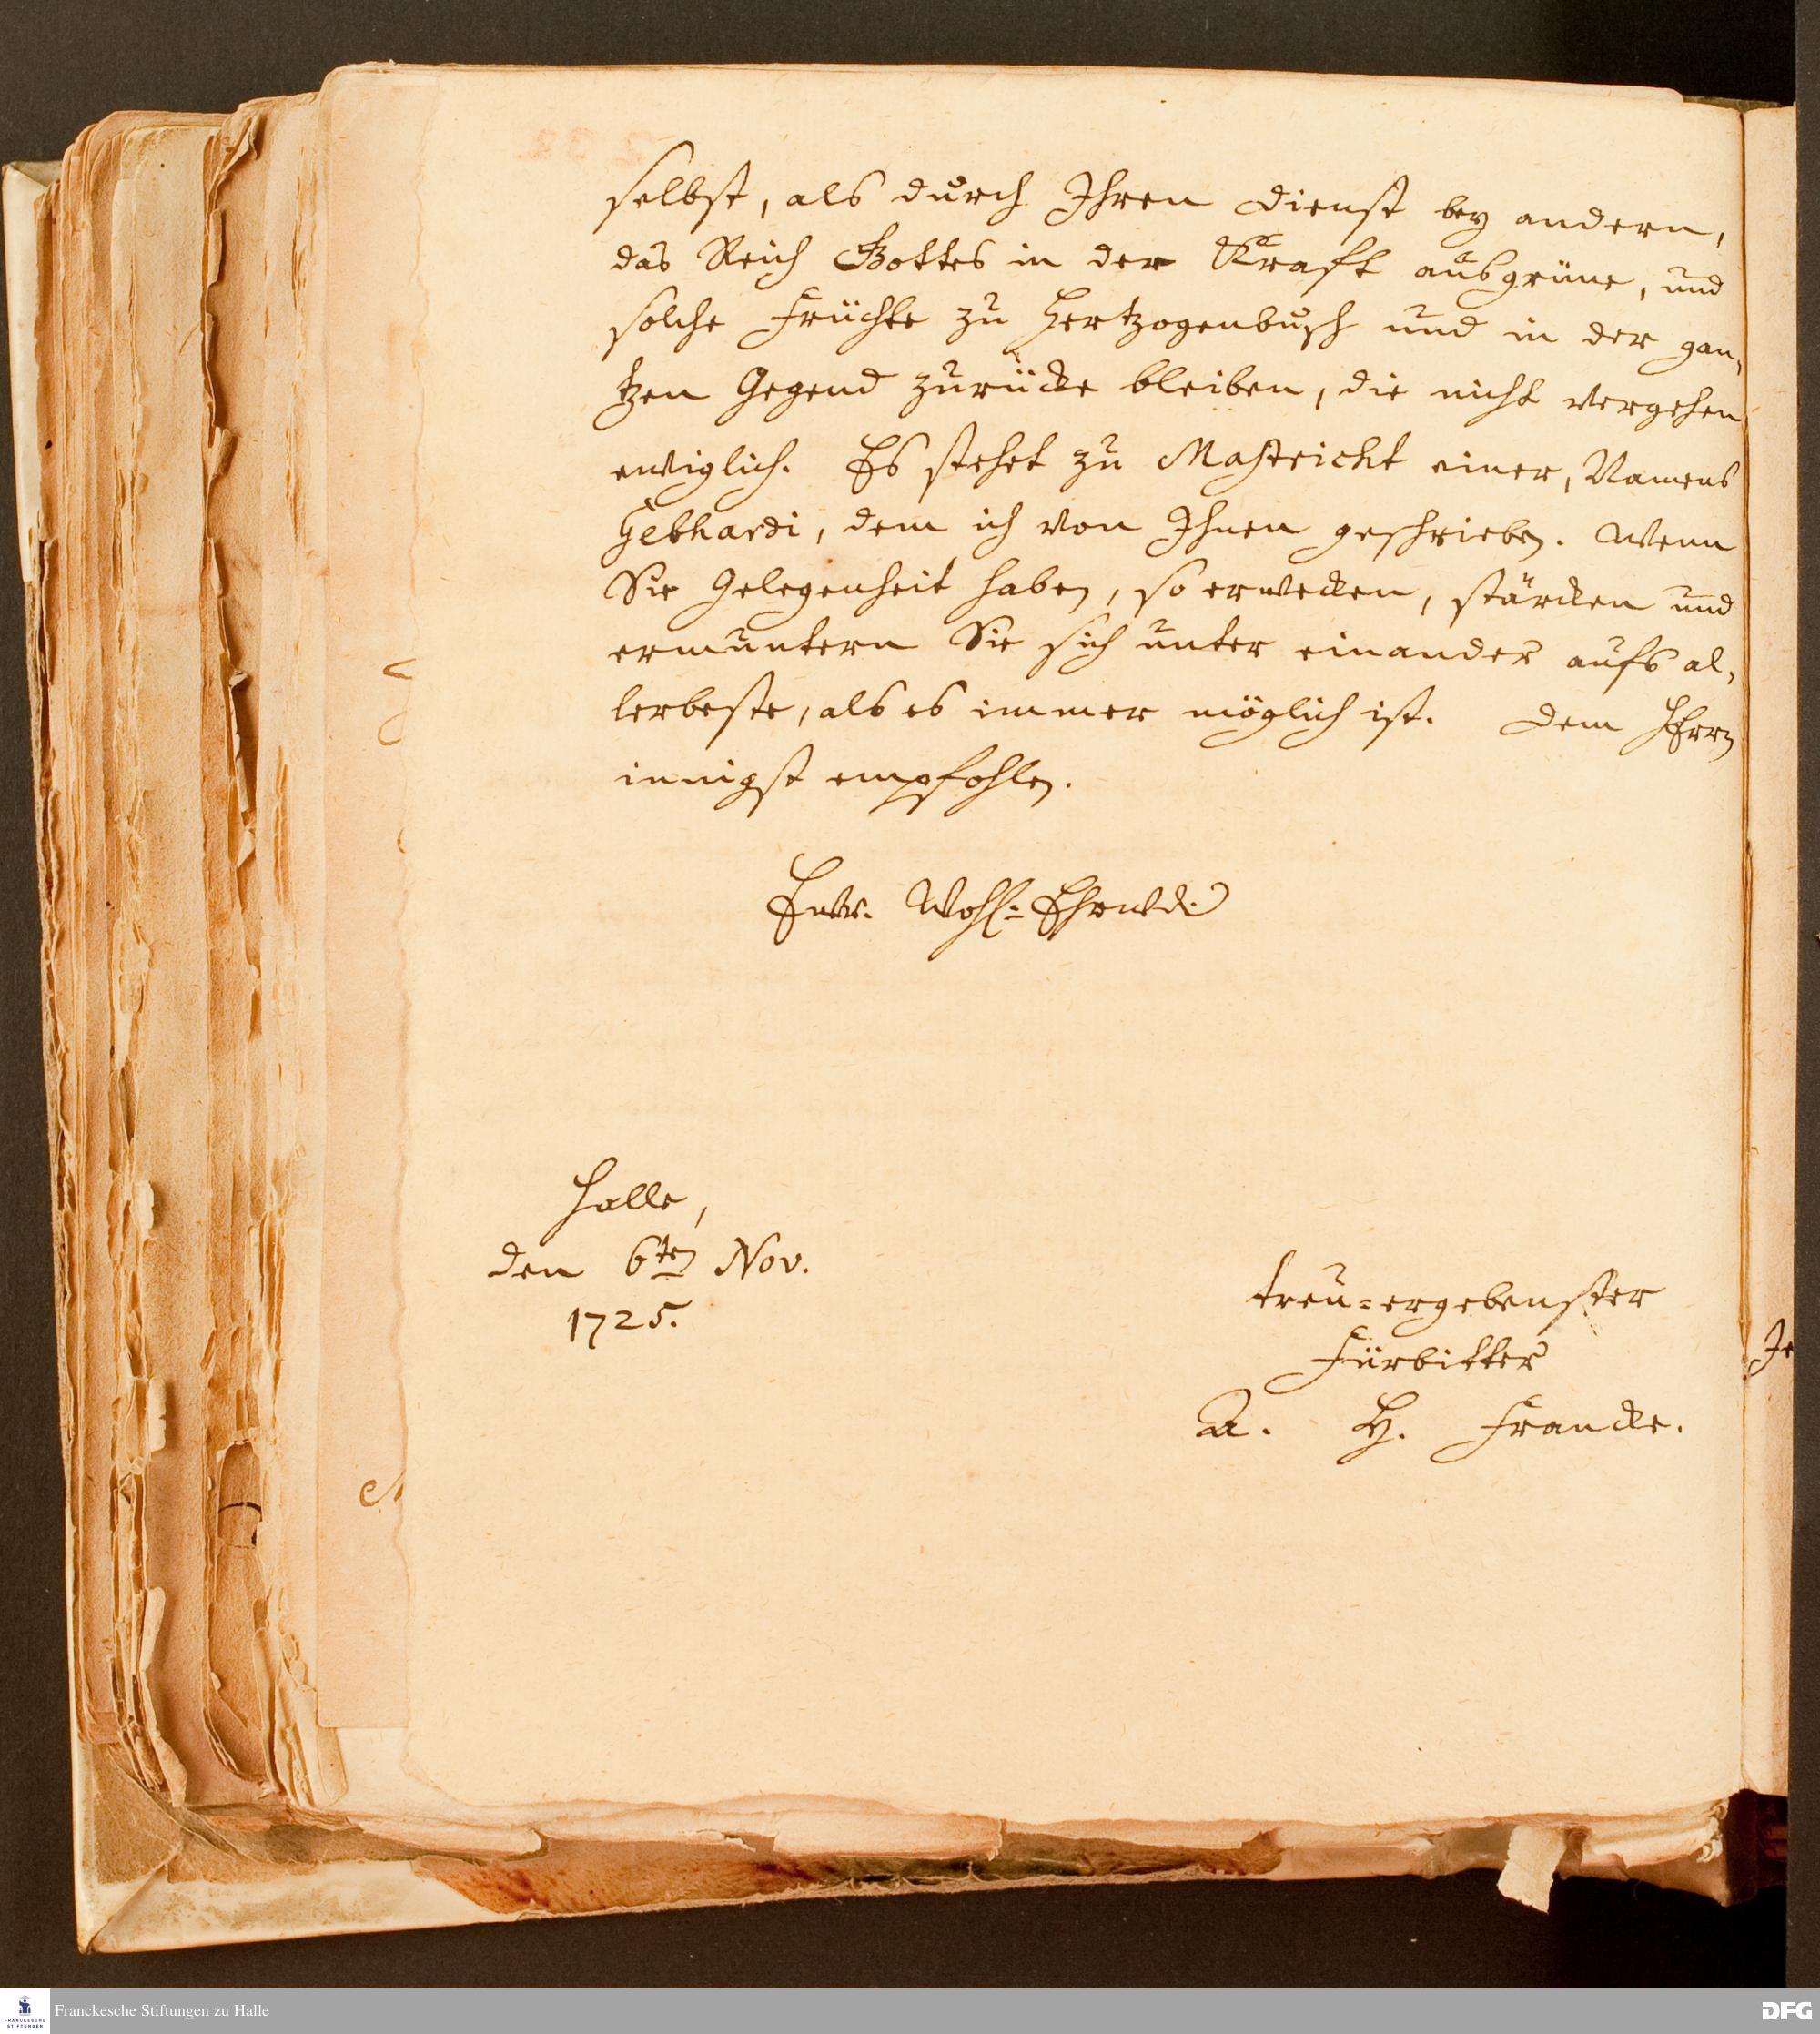 selbst, als durch Ihren Dienst bey andern,
das Reich Gottes in der Krafft ausgrüne, und
solche Früchte zu Hertzogenbusch und in der gan,
tzen Gegend zurücke bleiben, die nicht vergehen
ewiglich. Es stehet zu Mastricht einer, Namens
Gebhardi, dem ich von Ihnen geschrieben. Wenn
Sie Gelegenheit haben, so erwecken, stärcken und
ermuntern Sie sich unter einander aufs al,
lerbeste, als es immer möglich ist. Dem HErrn
innigst empfohlen.
Ew. Wohl-Ehrwd.
Halle,
den 6ten Nov.
1725.
treu-ergebenster
Fürbitter
A. H. Francke.
Franckesche Stiftungen zu Halle
FRANCKESCHE
STIFTUNGEN
DFG